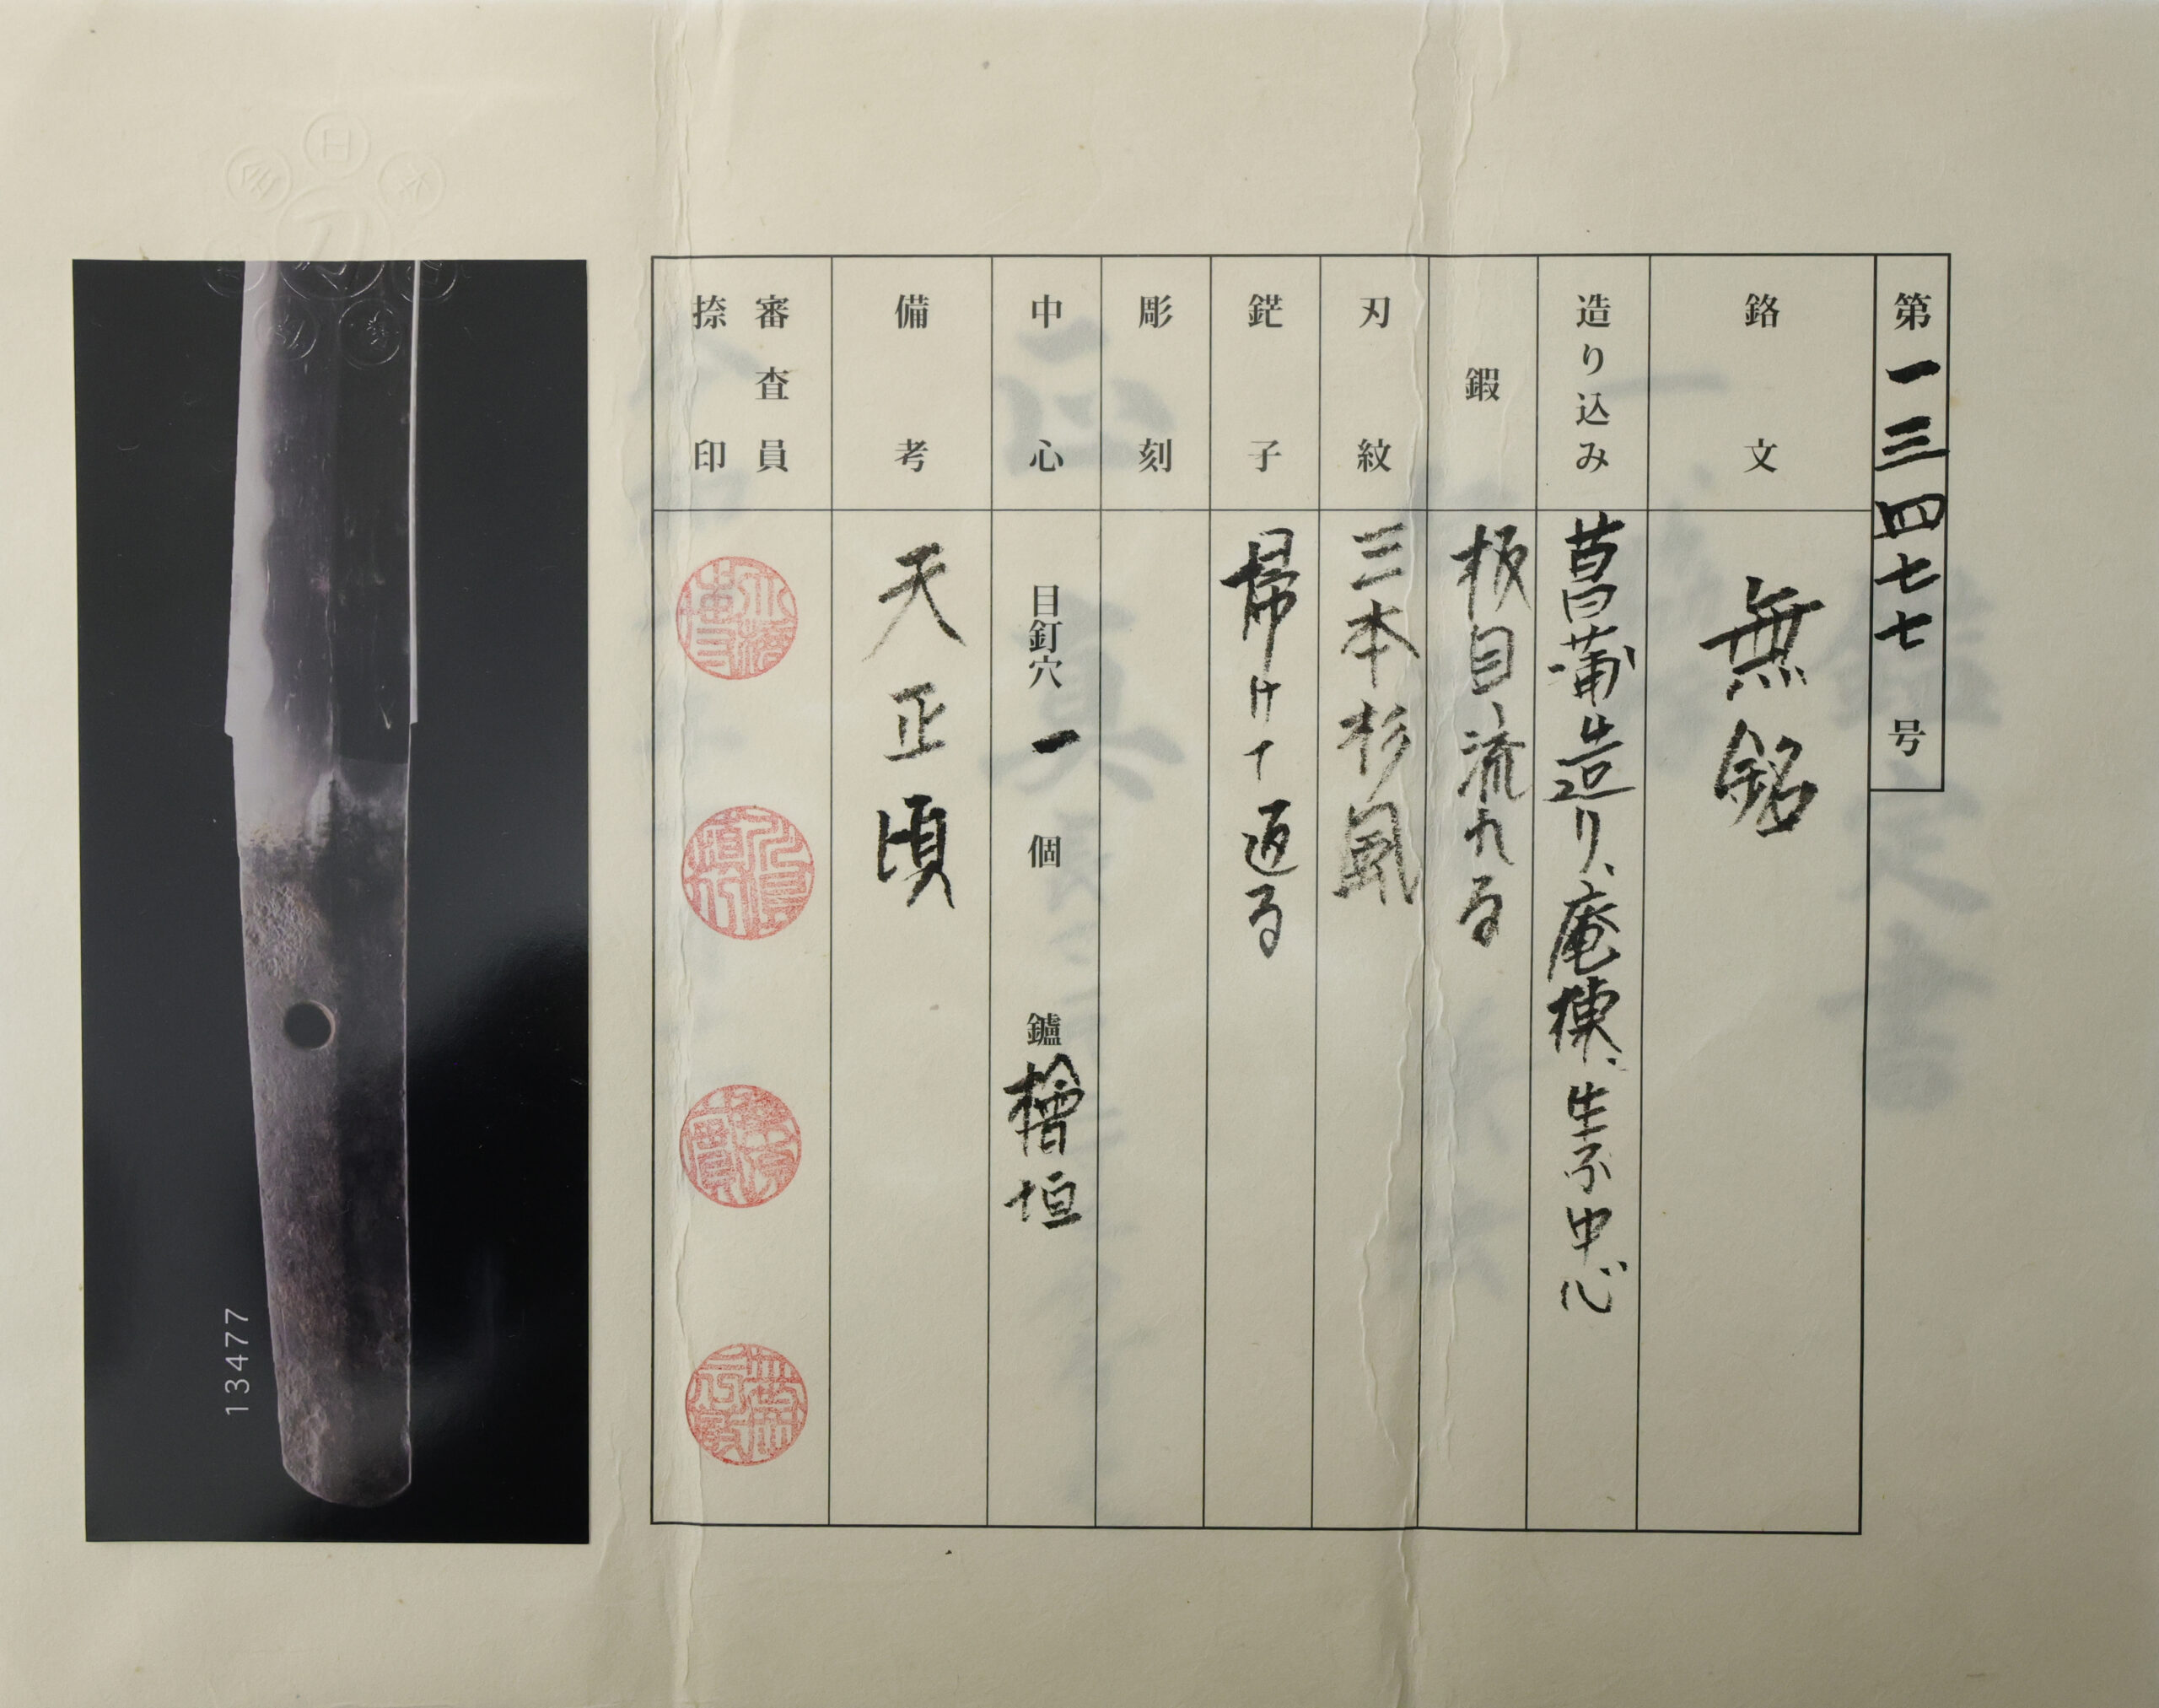 第一三四七七号
銘文 無銘
造り込み 菖蒲造り、庵棟、生ぶ中心
鍜 板目流れる
刃紋 三本杉風
鋩子 掃けて返る
彫刻
中心 目釘穴 一個 鑢 檜垣
備考 天正頃
審査員
捺印
13477